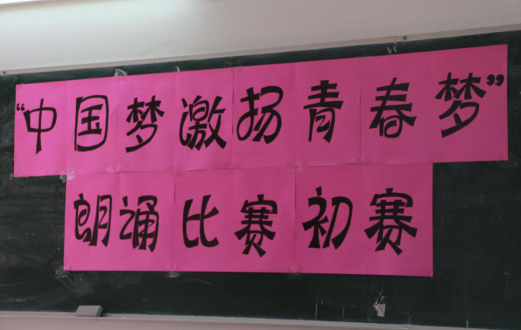 “中国梦激扬青春梦”
朗诵比赛初赛